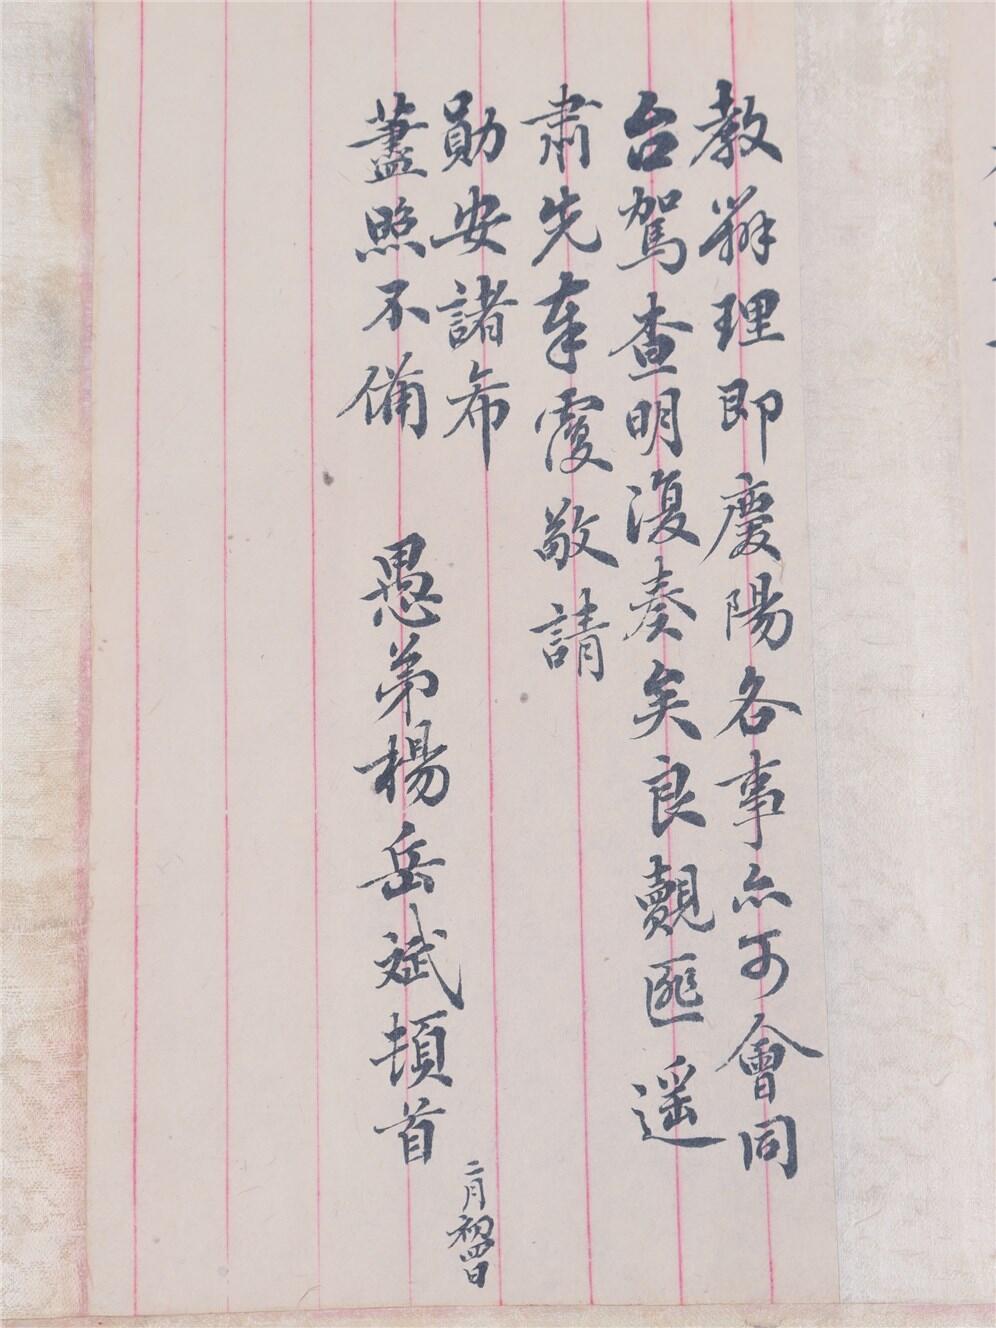 教辦理即慶陽各事亦可會同
台駕查明復奏矣良覿匪遥
肅先奉覆敬請
勛安諸希
藎照不備 愚弟楊岳斌頓首
二月初四日